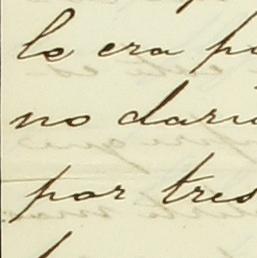 le era p
no daria
por tres